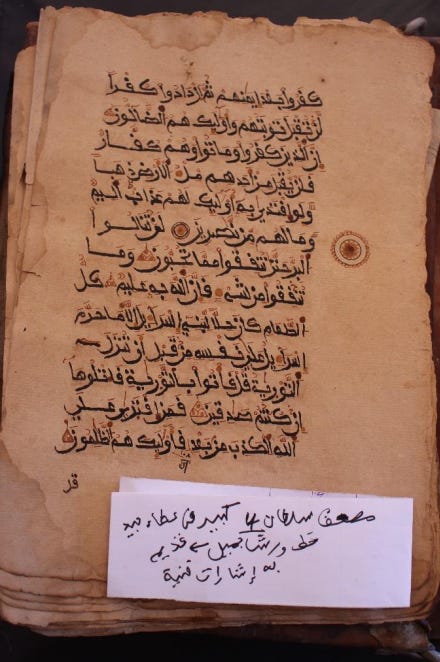 كفروا بعد ايمنهم ثم ازدادوا كفرا
لن تقبل توبتهم واوليك هم الضالون
ان الذين كفروا وماتوا وهم كفار
فلن يقبل من احدهم مل الارض ذهبا
ولو افتدى به اوليك لهم عذاب اليم
وما لهم من نصرين لن تنالوا
البر حتى تنفقوا مما تحبون وما
تنفقوا من شيء فان الله به عليم كل
الطعام كان حلا لبني اسراءيل الا ما حرم
اسراءيل على نفسه من قبل ان تنزل
التورية قل فاتوا بالتورية فاتلوها
ان كنتم صدقين فمن افترى على
الله الكذب من بعد فاوليك هم الظلمون
قل
مصحف سلطان كبير في
جميل قديم
به إشارات فنية